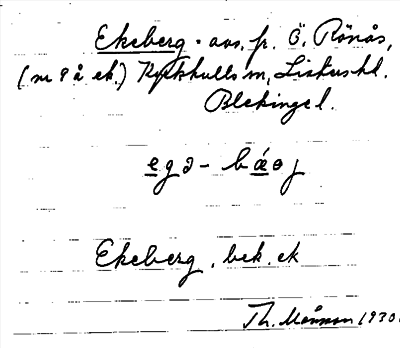 Ekeberg. avs. fr. Ö. Rönås,
(nr 9 å ek.) Kyrkhults sn, Listers hd.
Blekinge l.
egə- bǽɵj
Ekeberg, bek. ek
Th. Månsson 1930.